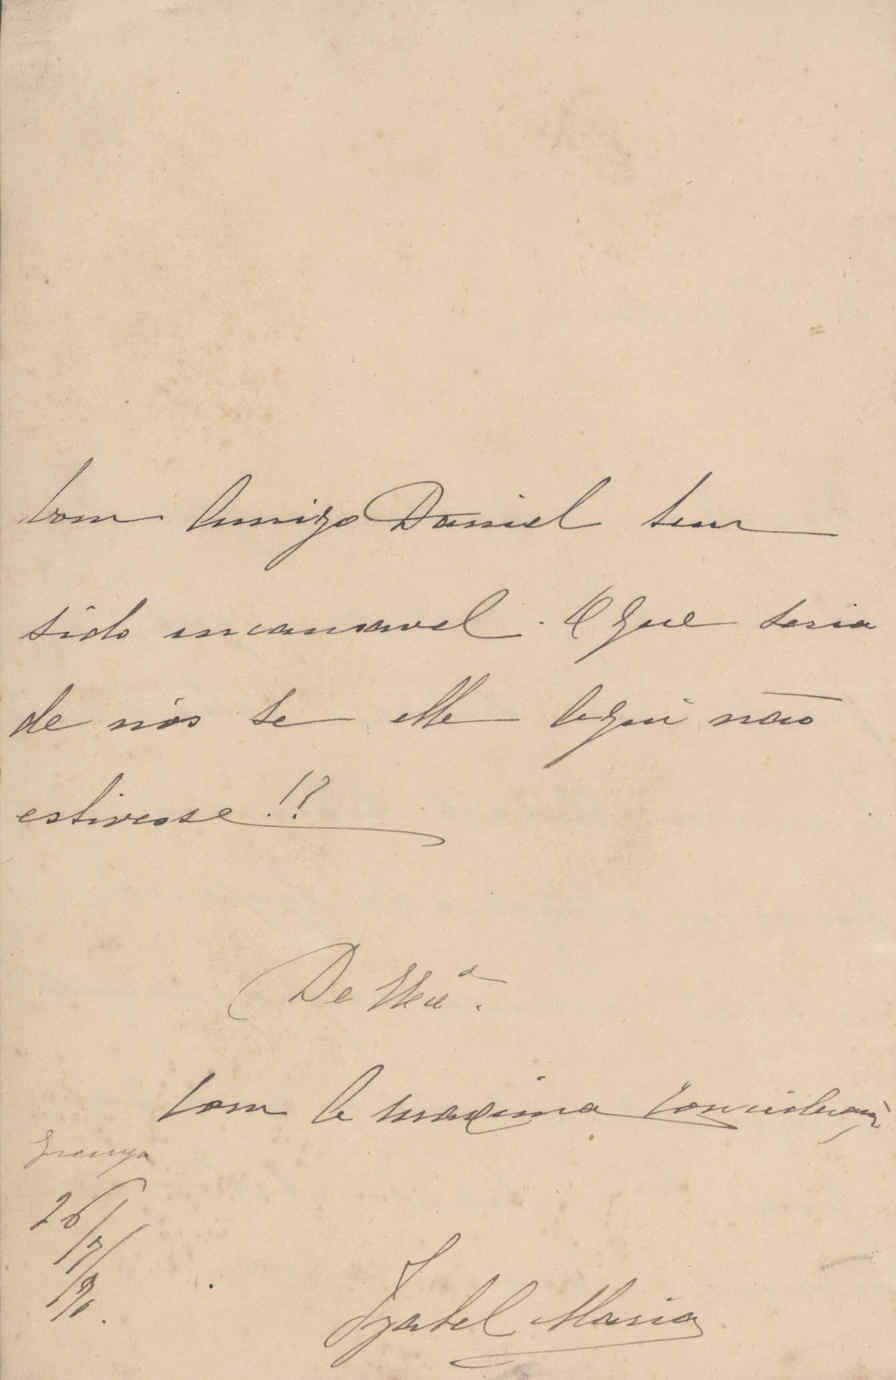 bom Amigo Daniel tem
sido incansavel. O que seria
de nós se elle Aqui não
estivesse!?
De
Com A maxima Concideração
Granja
26/7/90.
Izabel Maria